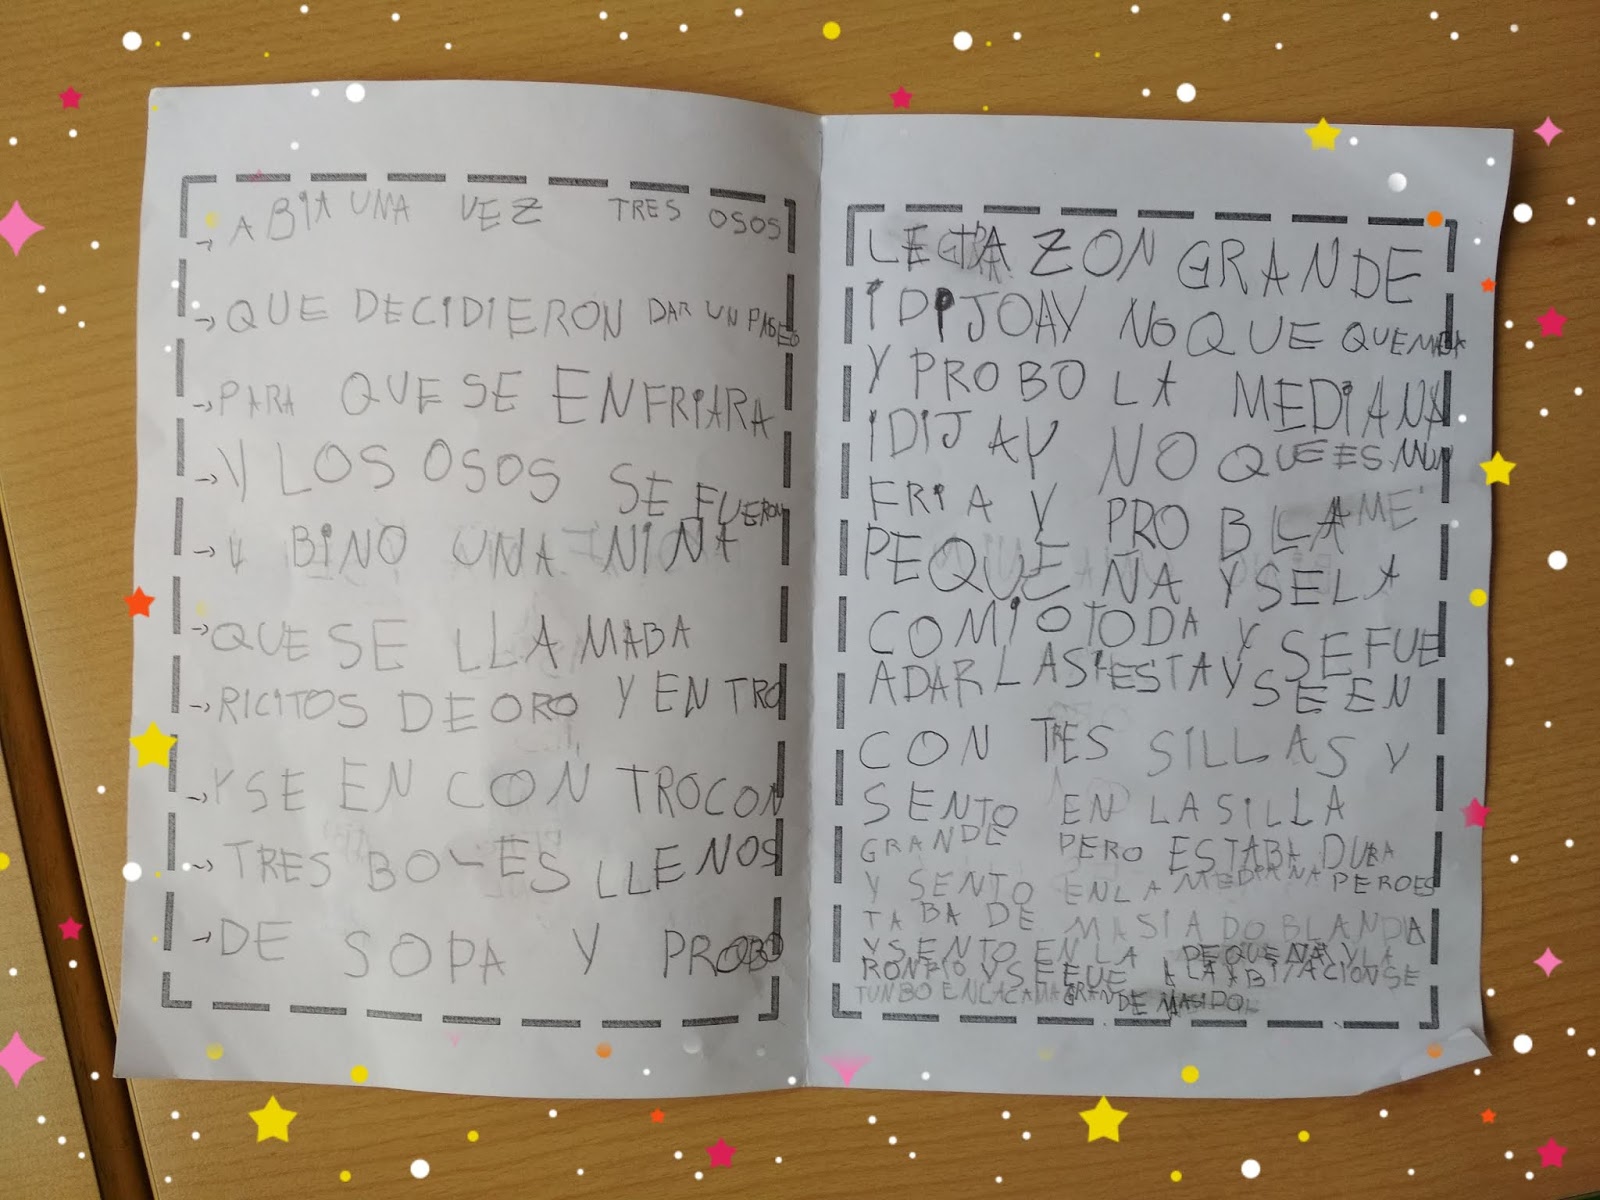 → ABIA UNA VEZ TRES OSOS
→ QUE DECIDIERON DAR UN PASEO
→ PARA QUE SE ENFRIARA
→ Y LOS OSOS SE FUERON
→ Y BINO UNA NINA
→ QUE SE LLAMABA
→ RICITOS DE ORO Y ENTRO
→ Y SE EN CON TRO CON
→ TRES BOLES LLENOS
→ DE SOPA Y PROBO
ZON GRANDE
I DIJO AY NO QUE QUEMABA
Y PROBO LA MEDIANA
I DIJ AY NO QUE ES MUY
FRIA Y PROB LA
PEQUE NA Y SE LA
COMIO TODA Y SE FUE
A DAR LA SIESTA Y SE EN
CON TRES SILLAS Y
SENTO EN LA SILLA
GRANDE PERO ESTABA DURA
Y SENTO EN LA MEDIANA PERO ES
TABA DE MASIADO BLANDA
Y SENTO EN LA PEQUENA Y LA
RONPIO Y SE FUE A LA ABITACION SE
TUNBO EN LA CAMA GRANDE